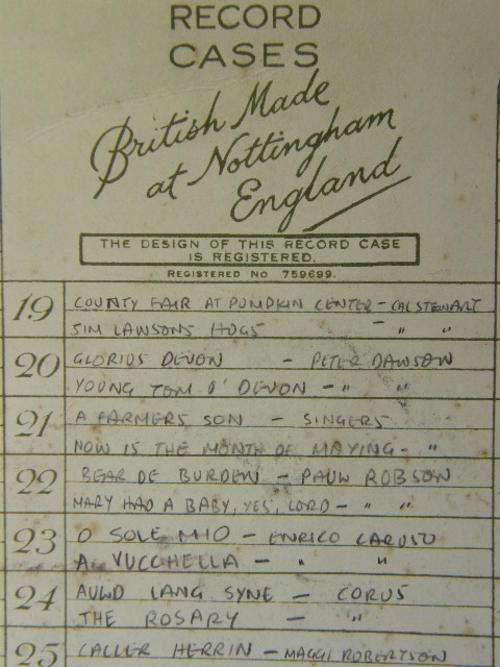 RECORD
CASES
British Made
at Nottingham
England
THE DESIGN OF THIS RECORD CASE
IS REGISTERED.
REGISTERED NO 759699.
19 COUNTY FAIR AT PUMPKIN CENTER - CAL STEWART
JIM LAWSONS HOGS - " "
20 GLORIUS DEVON - PETER DAWSON
YOUNG TOM O' DEVON - " "
21 A FARMERS SON - SINGERS
NOW IS THE MONTH OF MAYING - "
22 BEAR DE BURDEN - PAUW ROBSON
MARY HAD A BABY, YES, LORD - " "
23 O SOLE MIO - ENRICO CARUSO
A. VUCCHELLA - " "
24 AUWD LANG SYNE - CORUS
THE ROSARY - "
25 CALLER HERRIN - MAGGI ROBERTSON